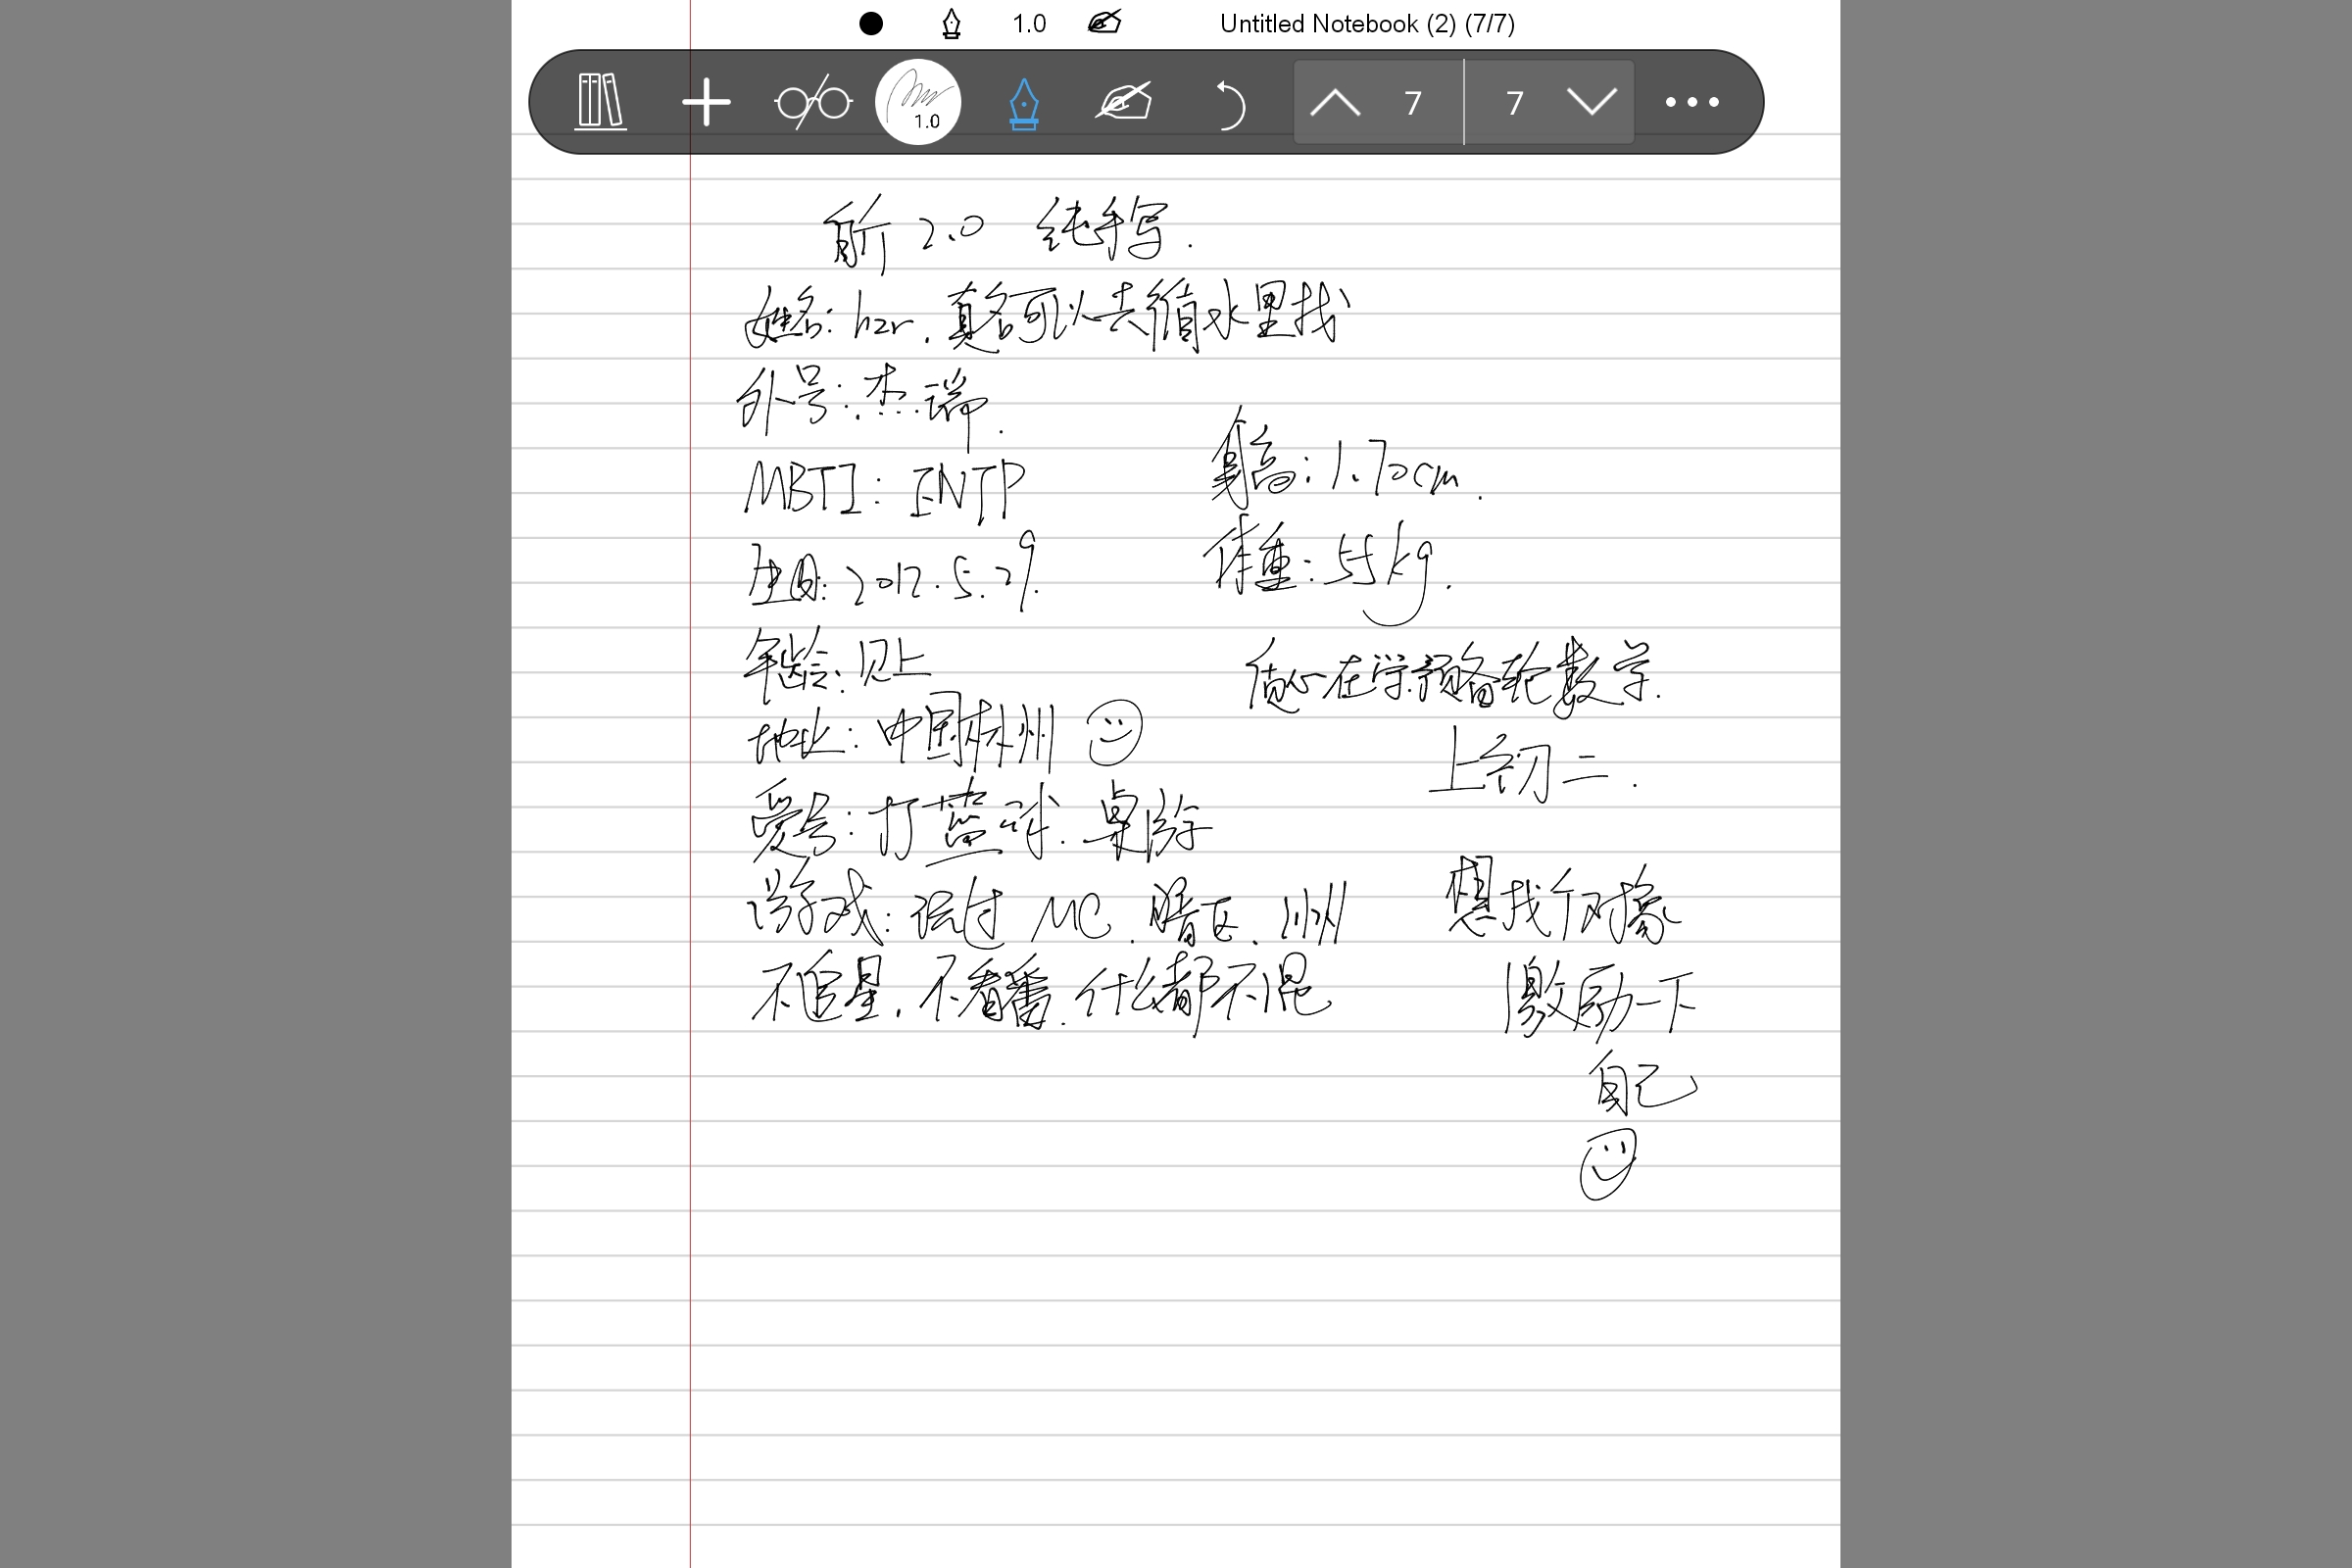 1.0 Untitled Notebook (2) (7/7)
1.0 7 7
2.0 纯手写.
姓名: hzr. 真名可以去循水里找
外号: 杰瑞.
MBTI: ENTP
身高: 1.70cm.
生日: 2012.5.29.
体重: 55kg.
年龄: 见上
在学预备轮数学.
地址: 中国林州
上初二.
爱好: 打蓝球. 桌游
游戏: 玩过 MC. 暗区. 洲
不追星. 不看番. 什么都不混
想找个对象
激励一下
自己